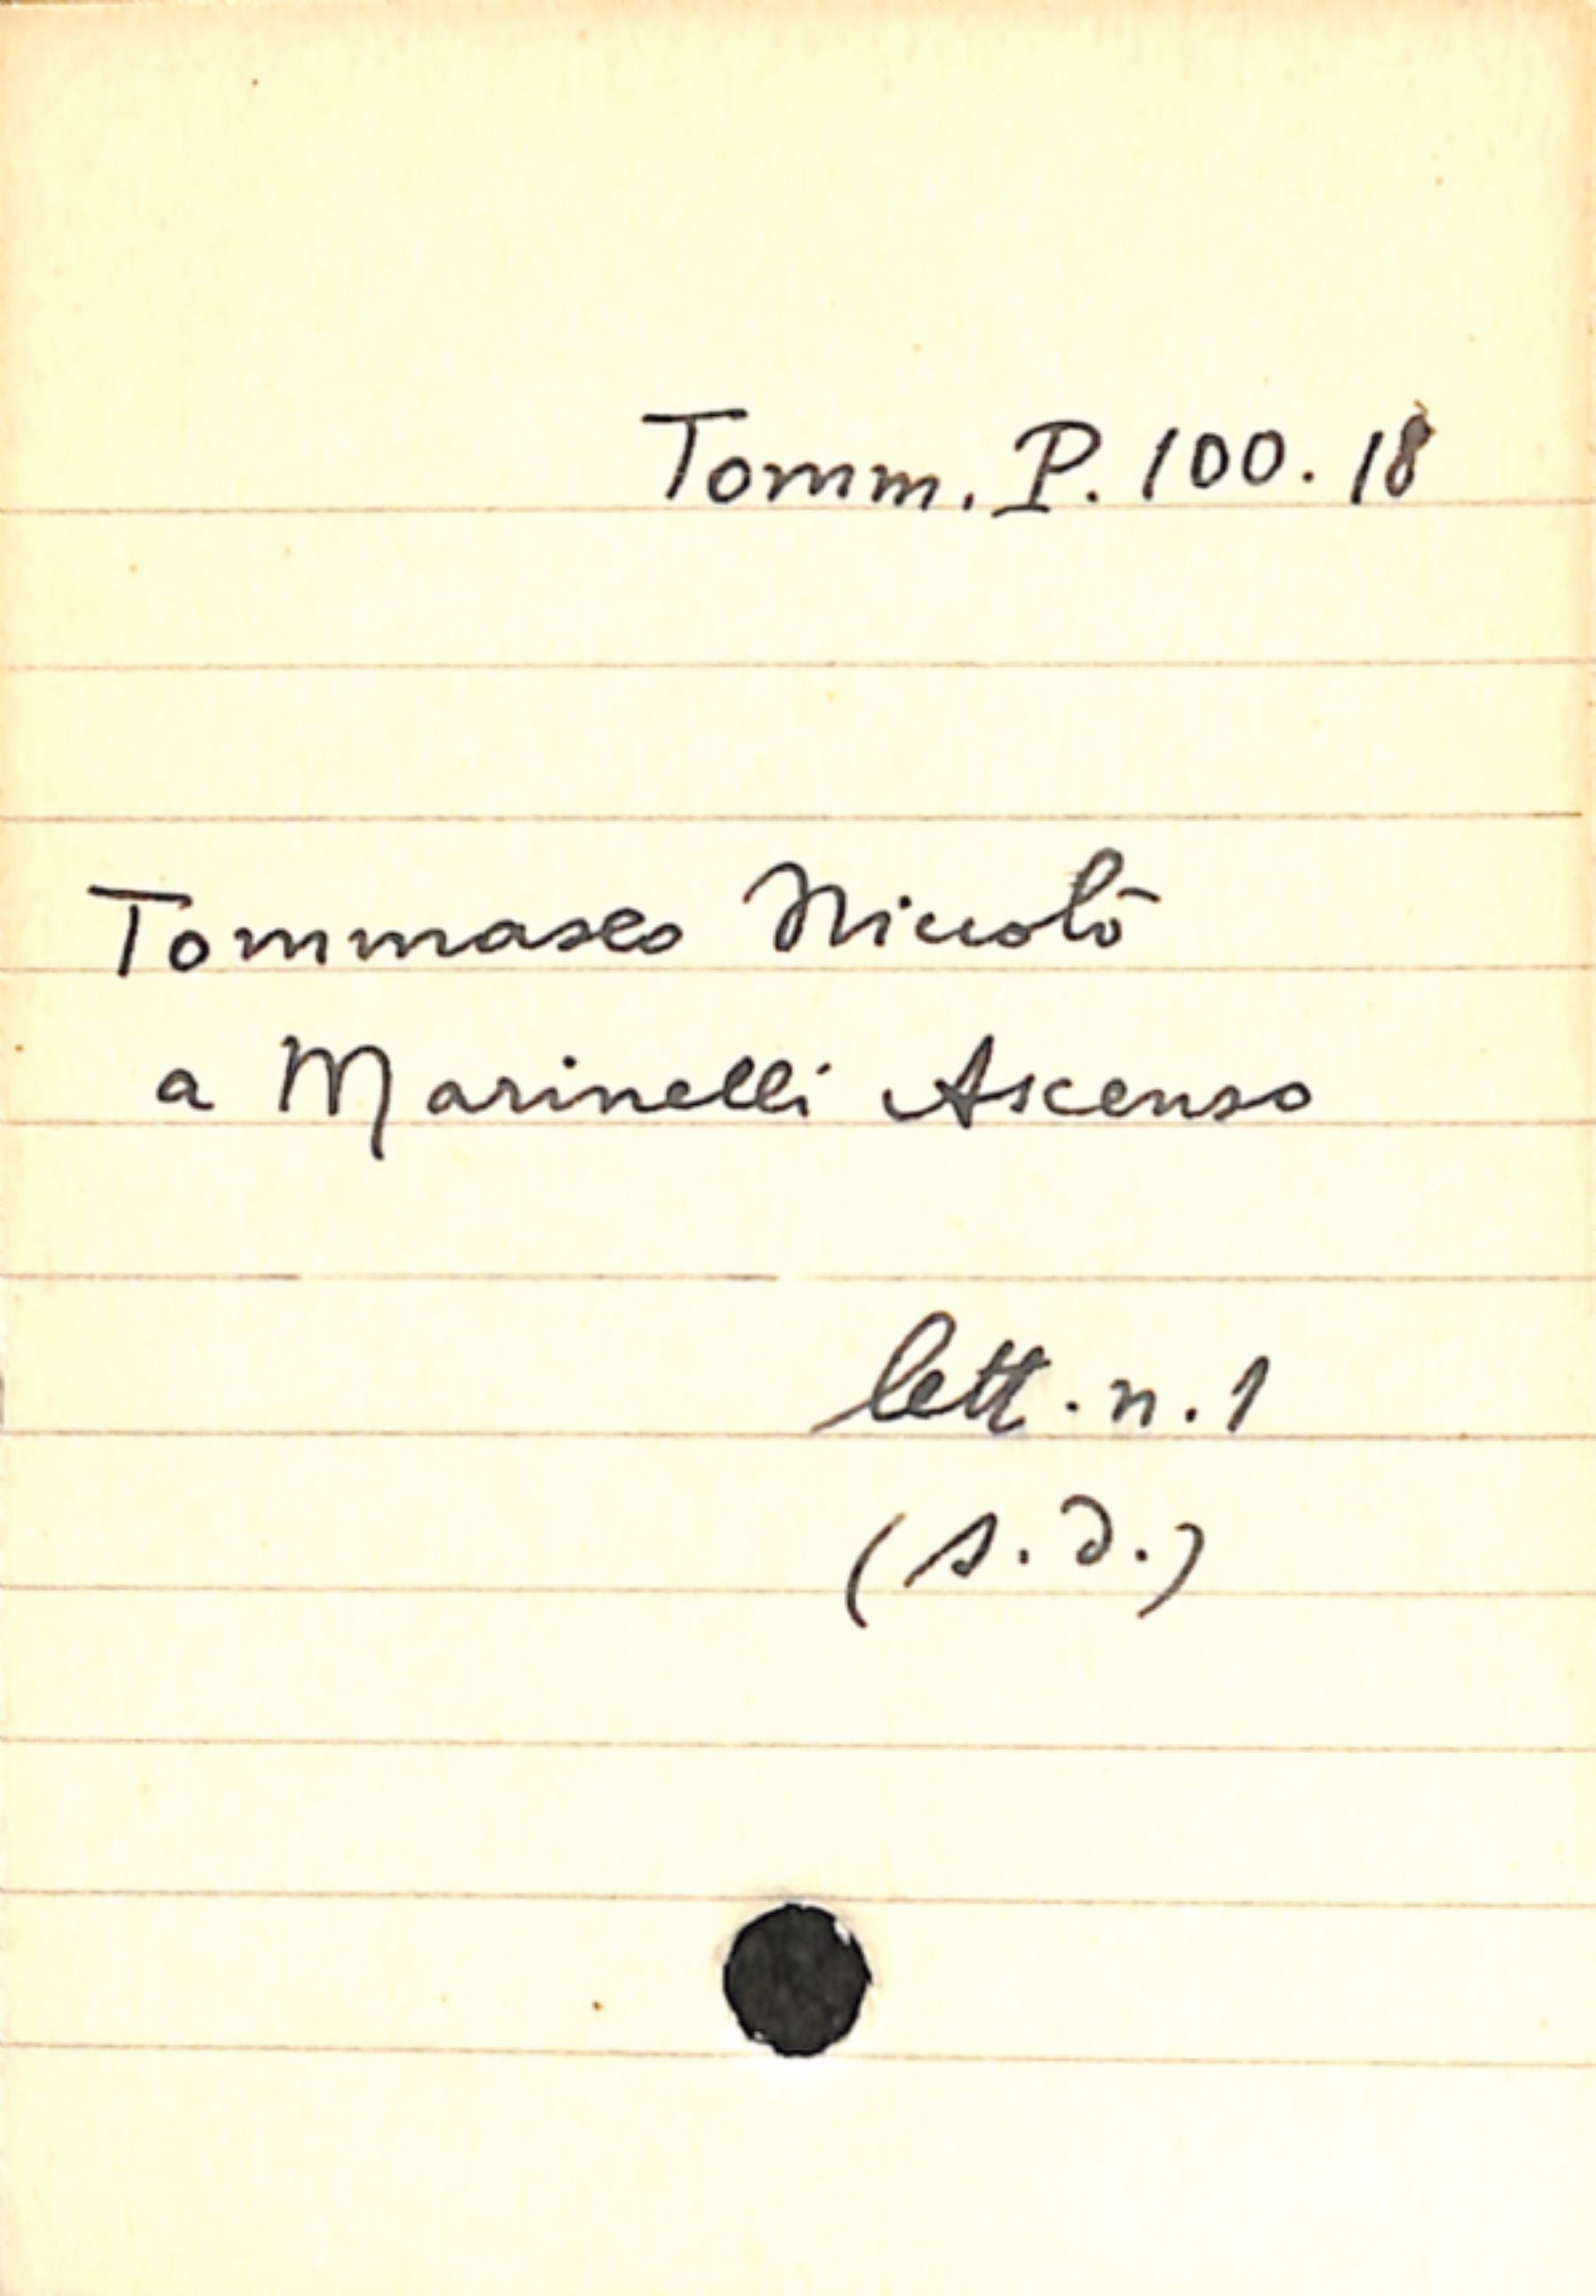 Tomm. P. 100. 18
Tommaseo Niccolò
a Marinelli Ascenso
lett. n. 1
(s. d.)